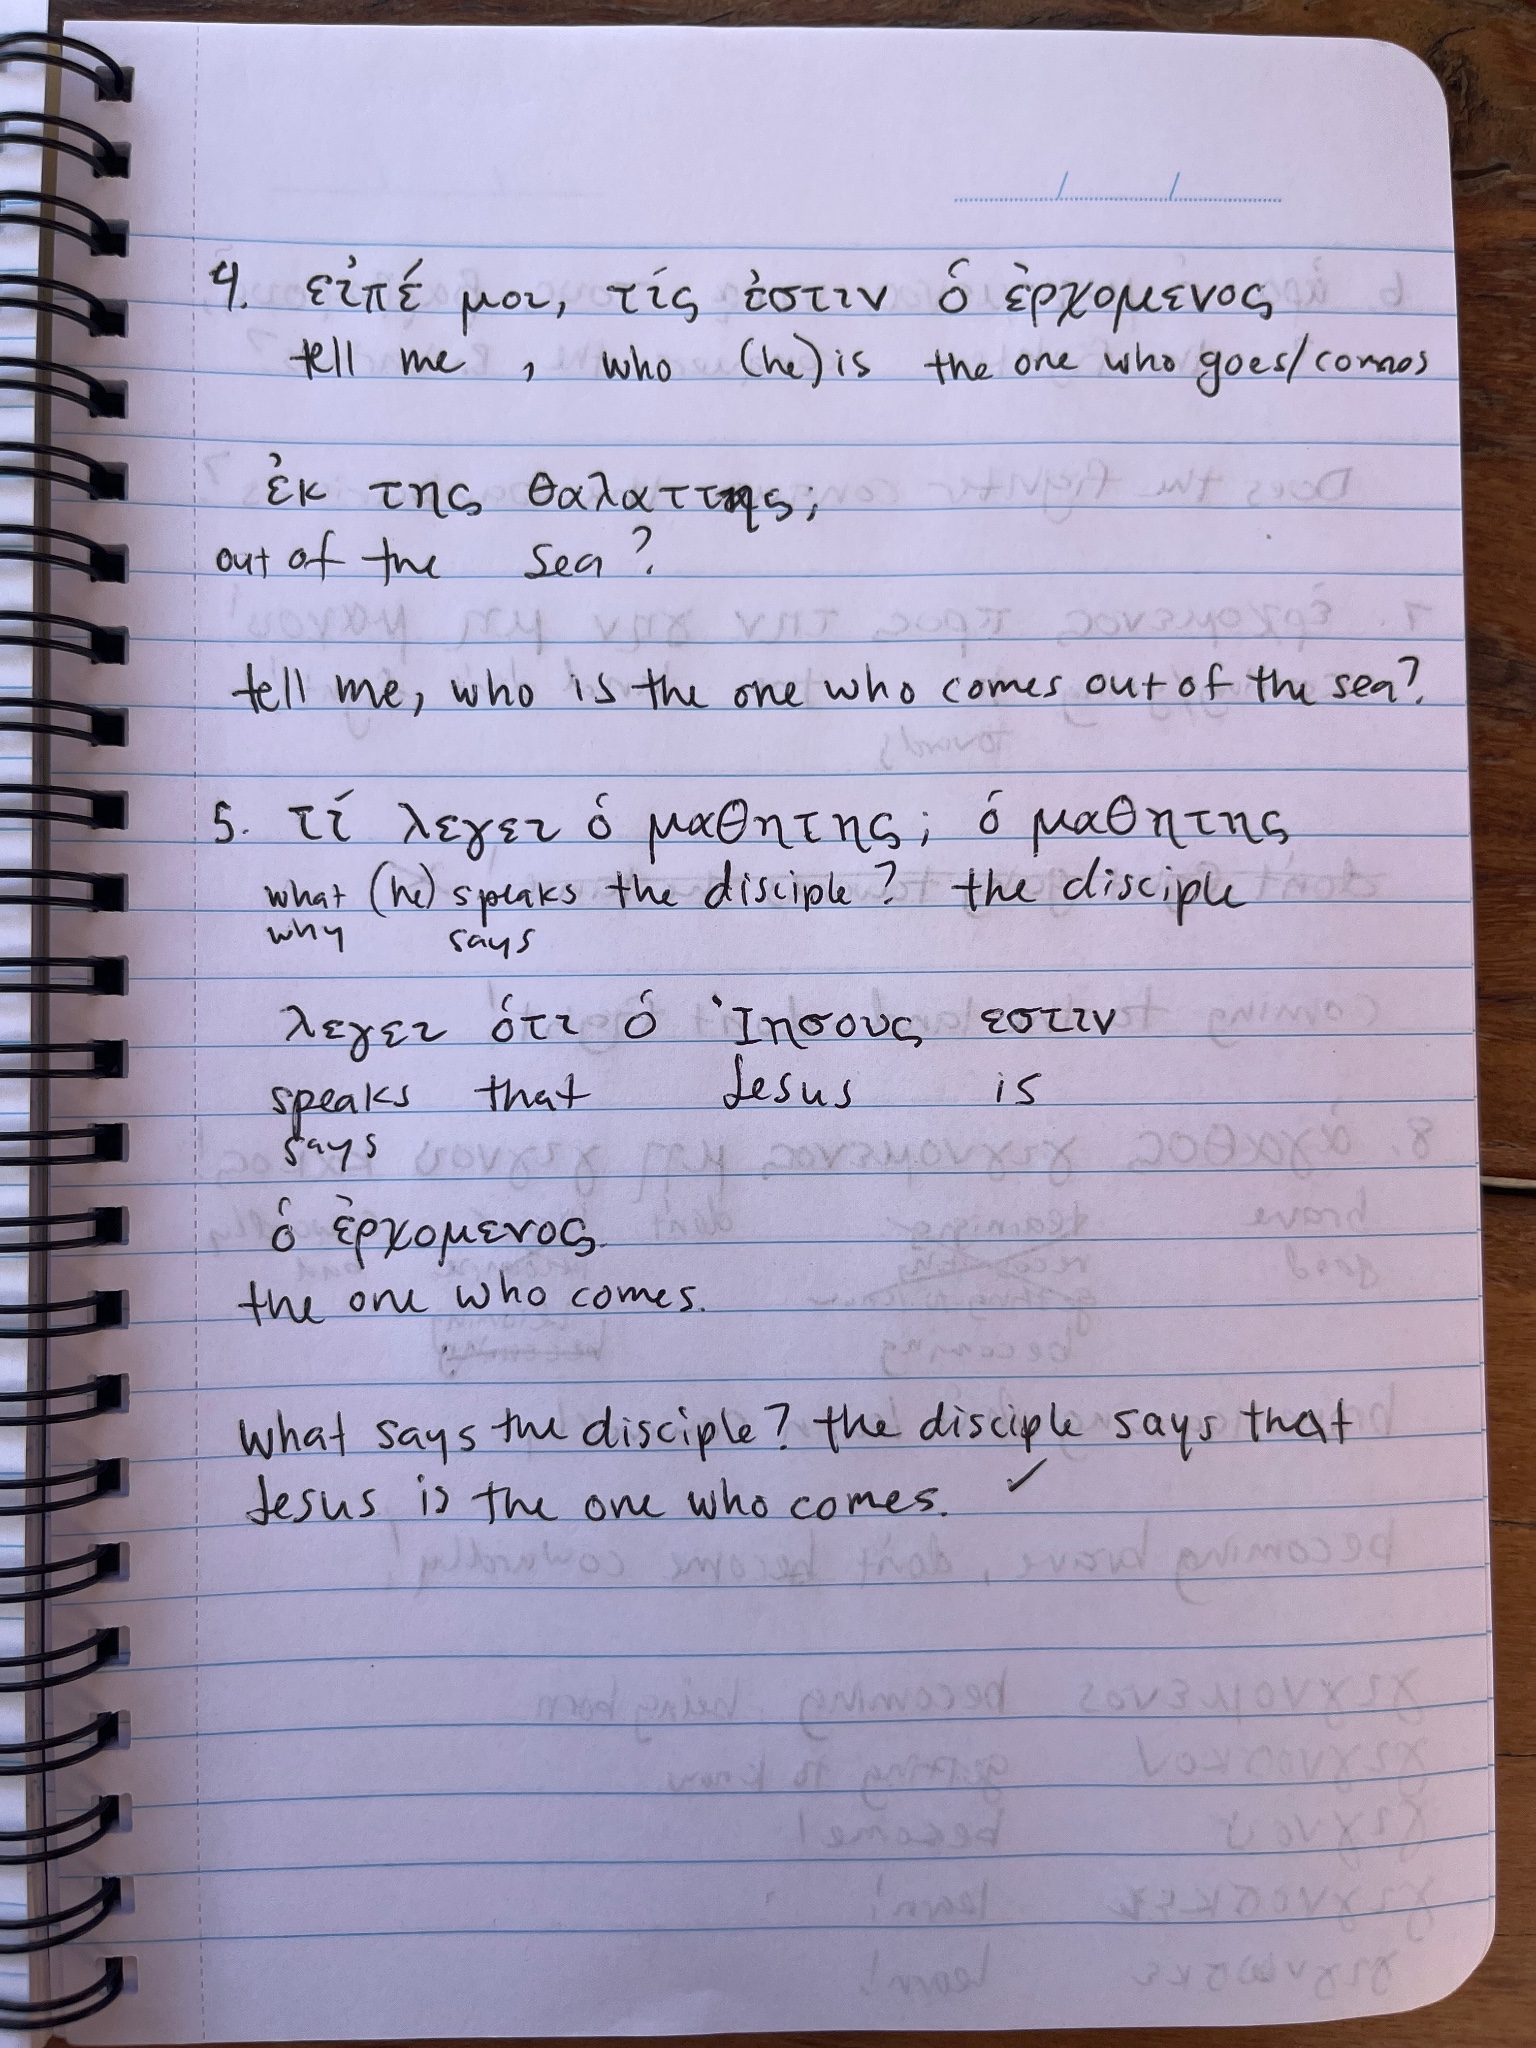 4. εἰπέ μοι, τίς ἐστιν ὁ ἐρχομενος
tell me, who (he) is the one who goes/comes
ἐκ της θαλαττης;
out of the sea?
tell me, who is the one who comes out of the sea?
5. τί λεγει ὁ μαθητης; ὁ μαθητης
what (he) speaks the disciple? the disciple
why says
λεγει ὁτι ὁ Ἰησους εστιν
speaks that Jesus is
says
ὁ ἐρχομενος.
the one who comes.
What says the disciple? the disciple says that
Jesus is the one who comes. ✓